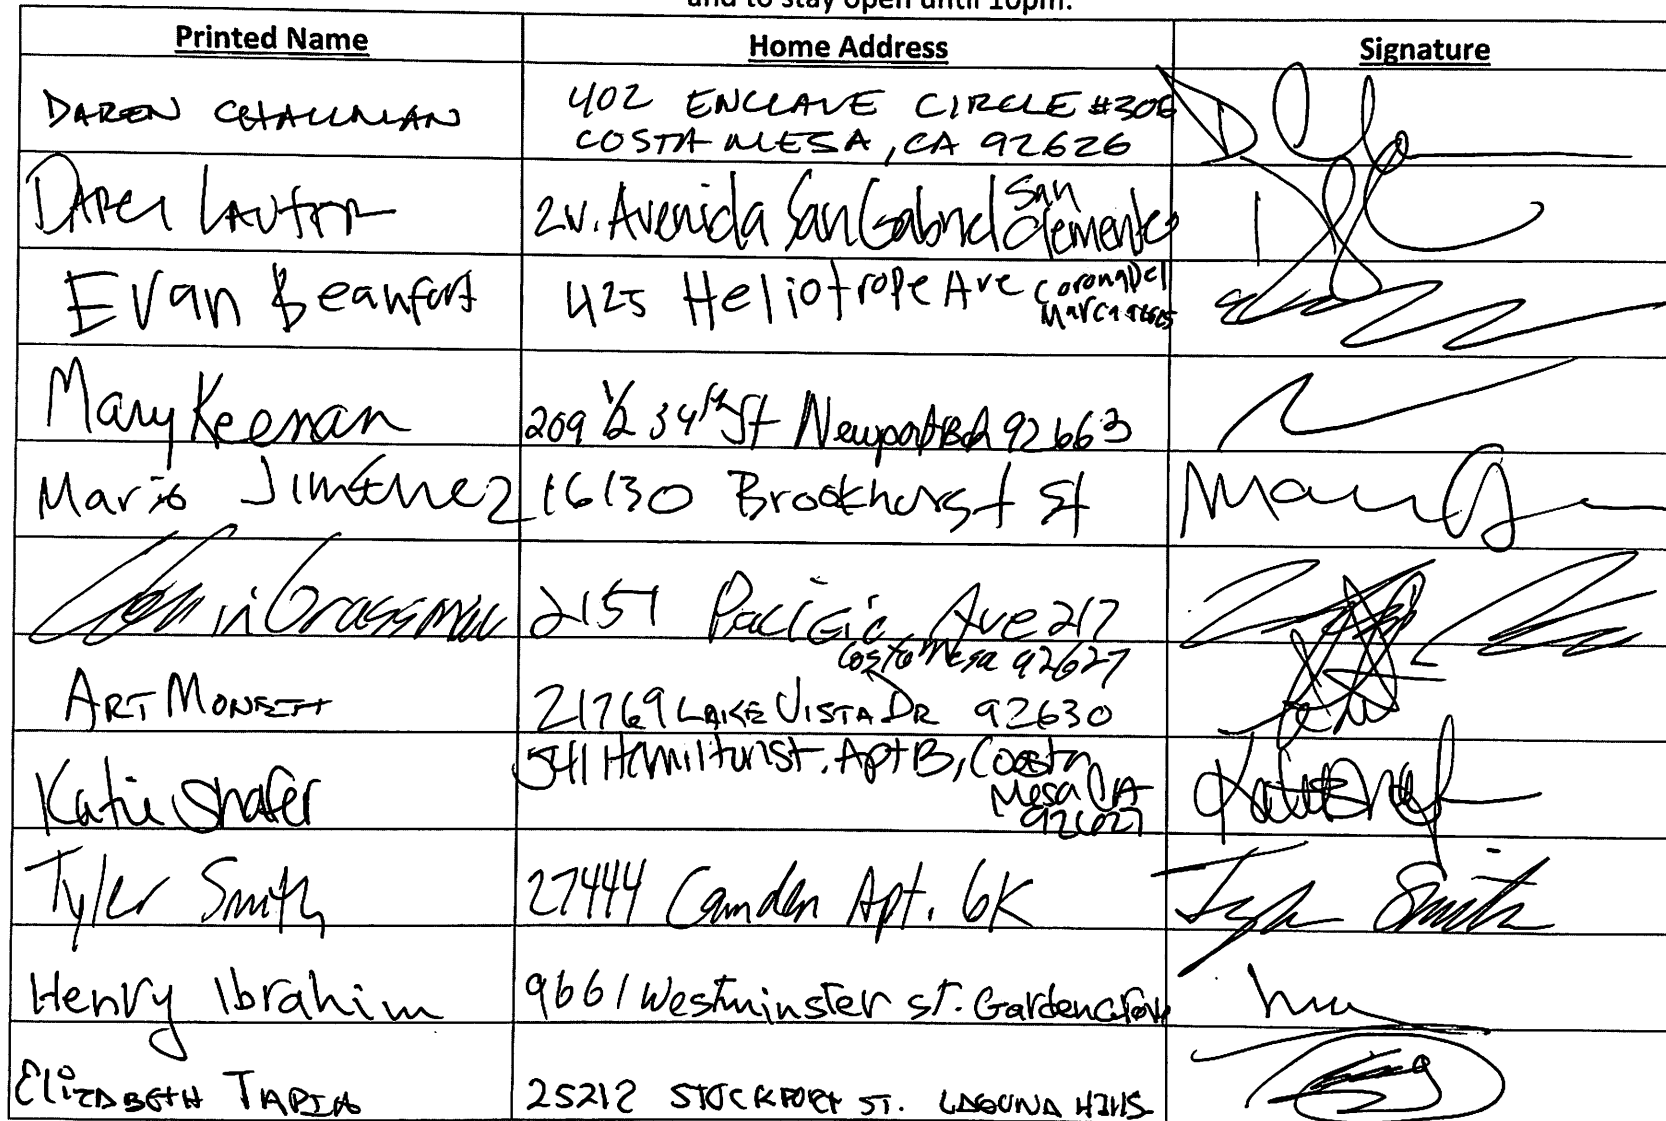 and to stay open until 10pm.
Printed Name Home Address Signature
DAREN CHALLMAN 402 ENCLAVE CIRCLE #306
COSTA MESA, CA 92626
DARCI 2W. Avenida San Gabriel San
Clemente
Evan Beaufort 425 Heliotrope Ave Corona Del
Mar CA 92625
Mary Keenan 209 1/2 34th St Newport Bch 92663
Mario Jimenez 16130 Brookhurst St Mario
Grassman 2151 Pacific Ave 217
Costa Mesa 92627
ART 21769 LAKE VISTA DR 92630
Katie Shafer 541 Hamilton St. Apt B, Costa
Mesa CA
92627
Tyler Smith 27444 Camden Apt. 6K Tyler Smith
Henry Ibrahim 9661 Westminster st. Garden Grove
Elizabeth TAPIA 25212 STOCKPORT ST. LAGUNA HILLS